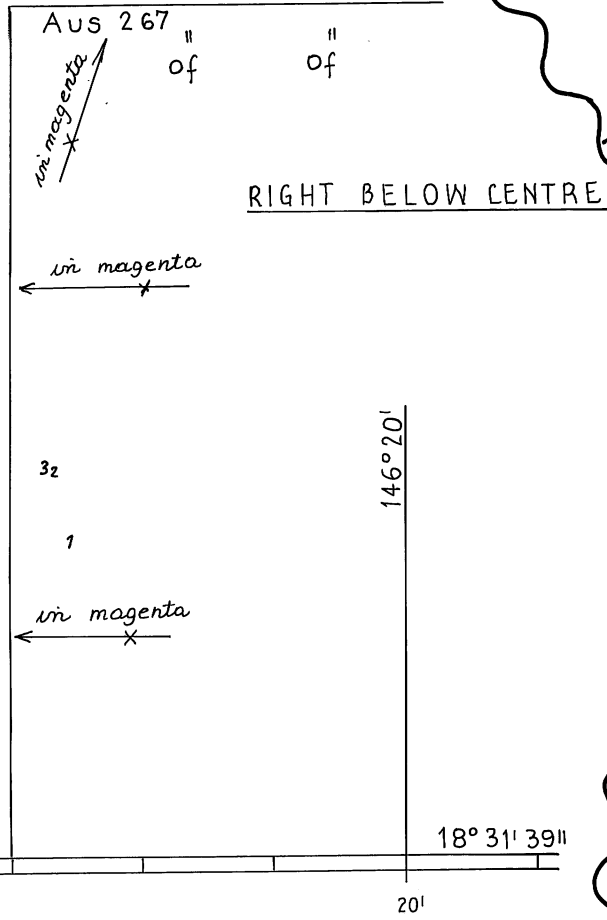 Aus 267
" "
of of
in magenta
RIGHT BELOW CENTRE
in magenta
146°20'
32
1
in magenta
18°31'39"
20'